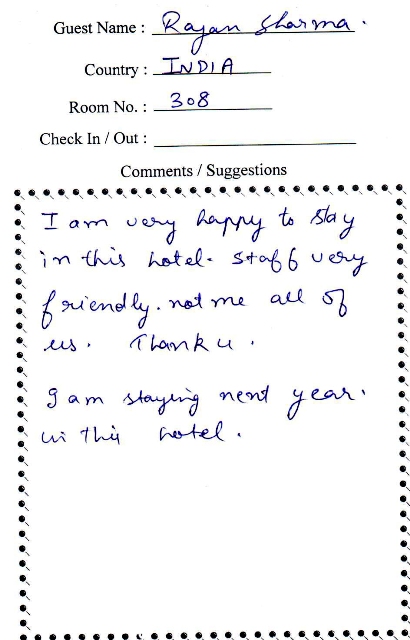 Guest Name : Rajan Sharma.
Country : INDIA
Room No. : 308
Check In / Out :
Comments / Suggestions
I am very happy to stay
in this hotel. Staff very
friendly. not me all of
us. Thank u.
I am staying next year.
in this hotel.